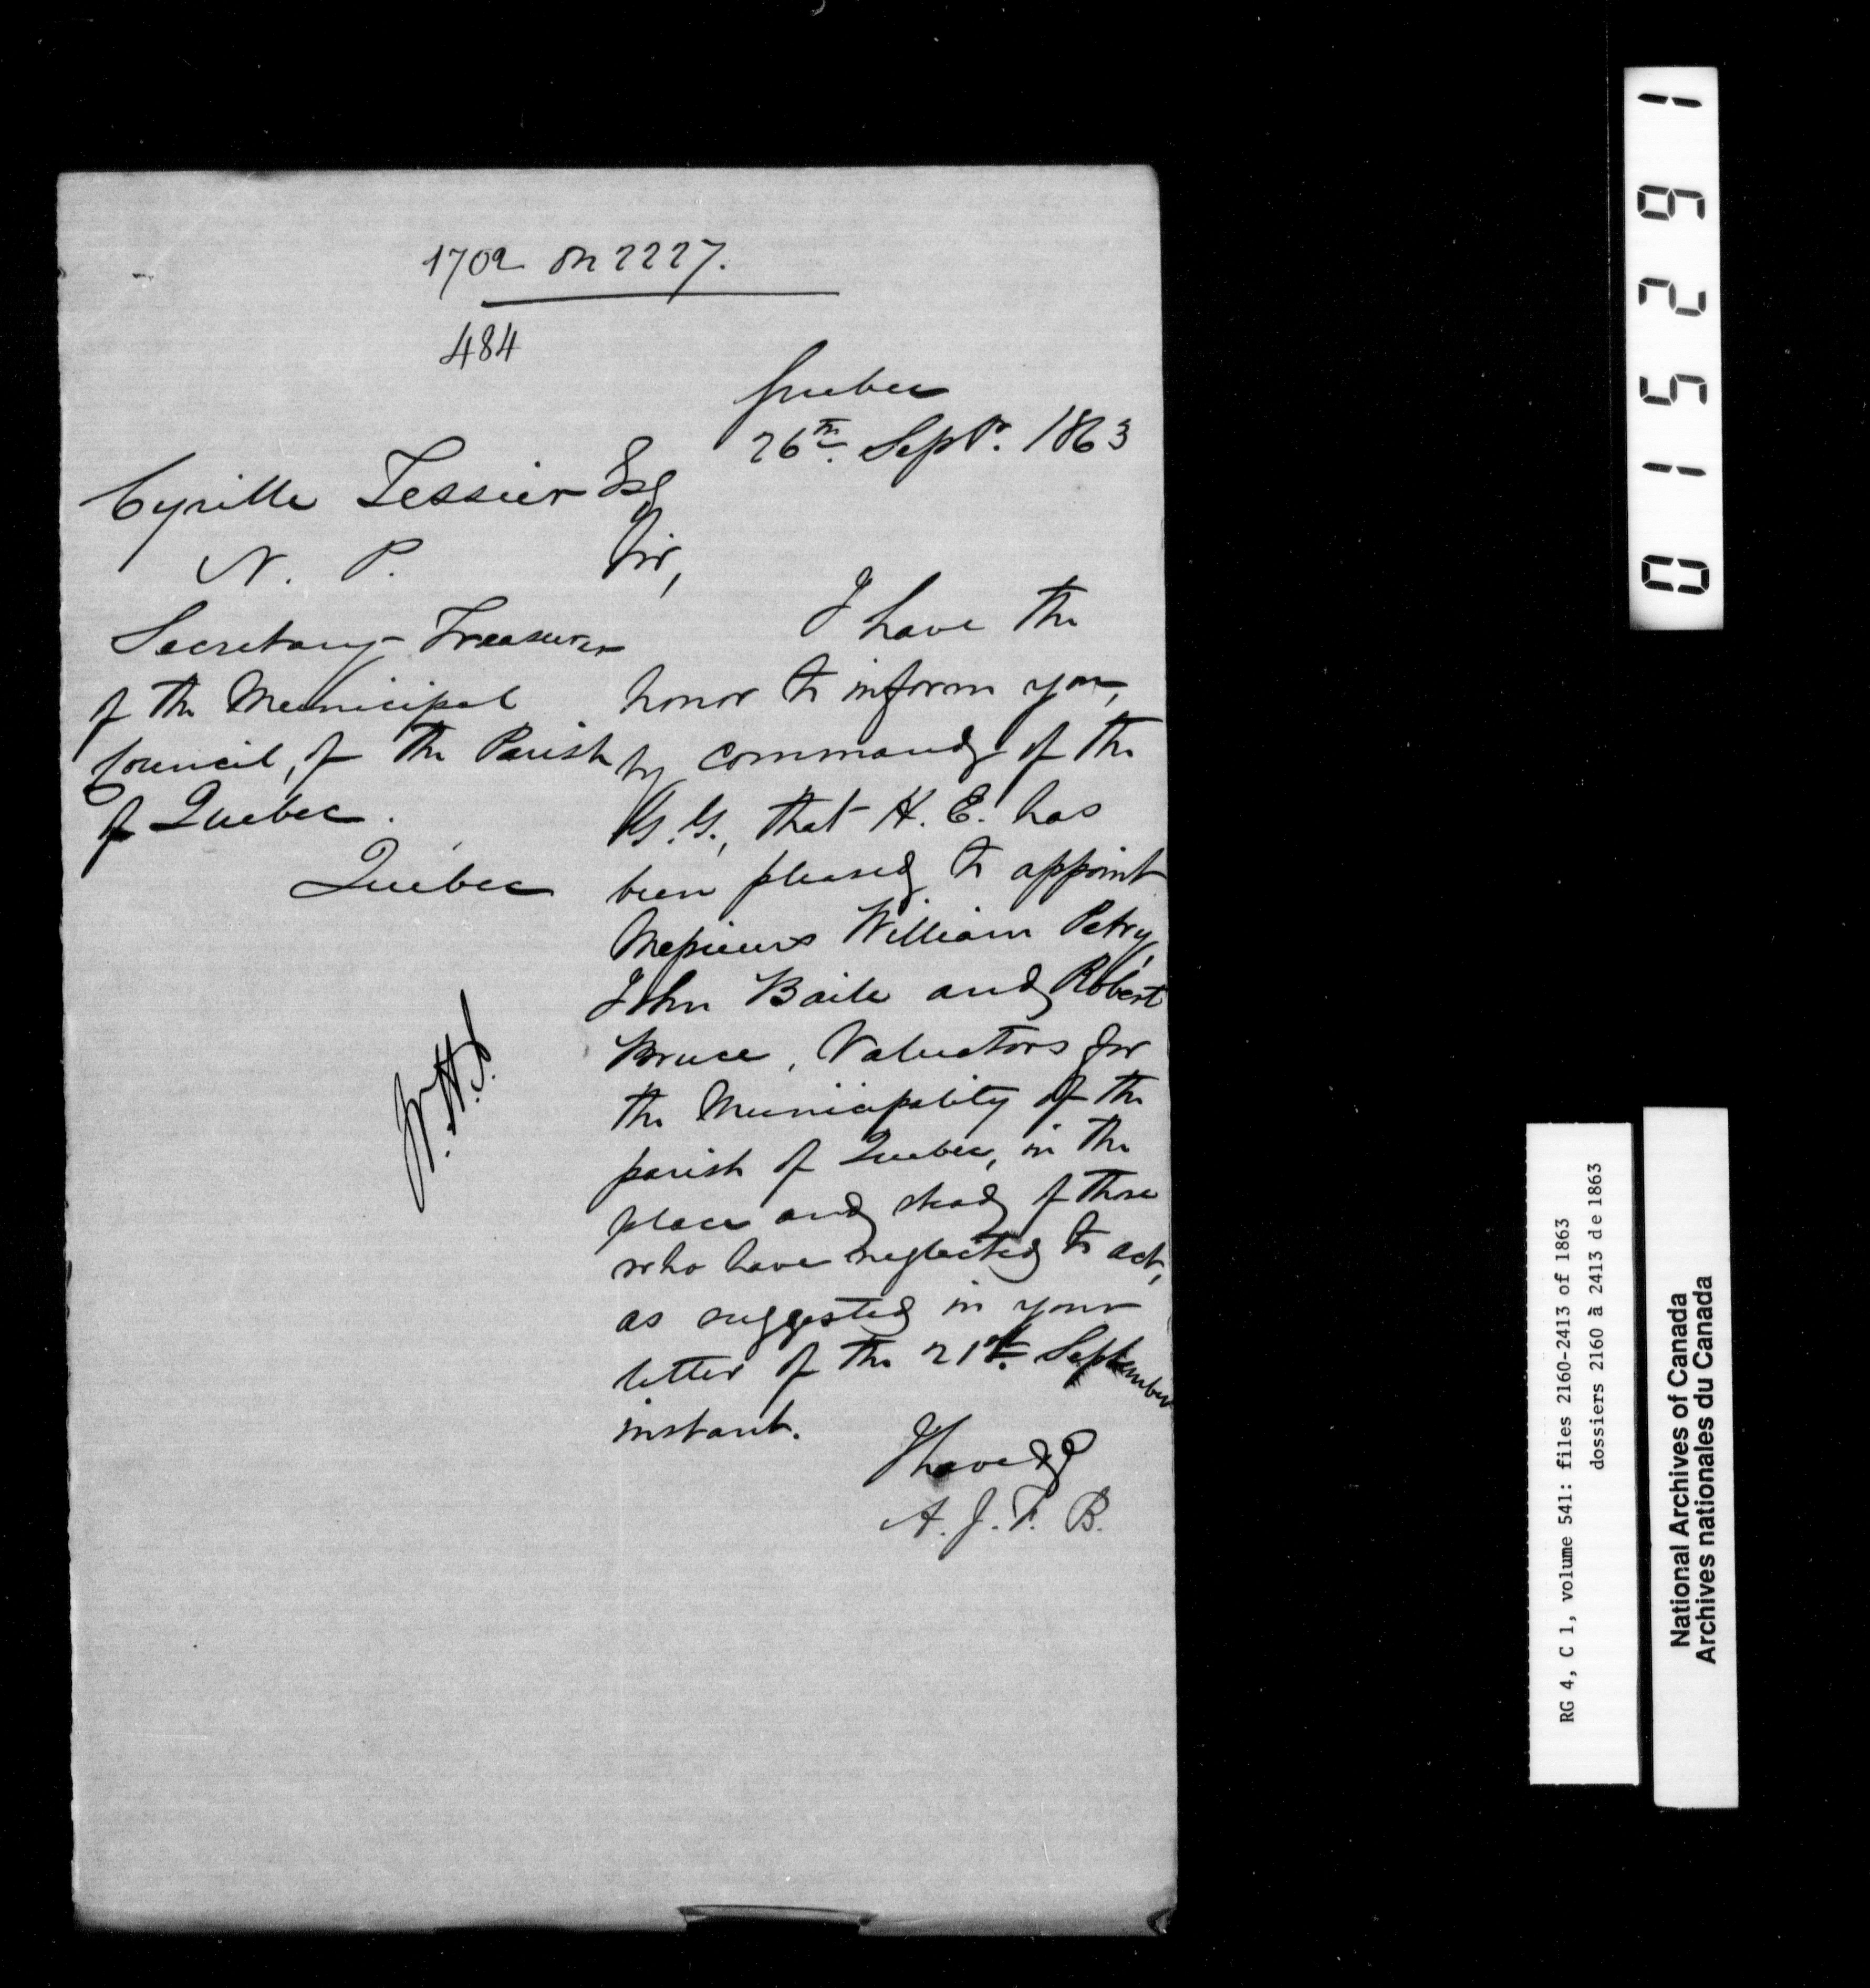 1702 on 2227.
484
Quebec
26th. Septr. 1863
Cyrille Tessier Esq
N. P.
Secretary-Treasurer
of the Municipal
Council, of the Parish
of Quebec.
Quebec
W.H.J.
Sir,
I have the
honor to inform you,
by command of the
G.G., that H. E. has
been pleased to appoint
Messieurs William Petry,
John Baile and Robert
Bruce, Valuators for
the Municipality of the
parish of Quebec, in the
place and stead of those
who have neglected to act,
as suggested in your
letter of the 21st. September
instant.
I have &c
A. J. F. B.
01529 1
RG 4, C 1, volume 541: files 2160-2413 of 1863
dossiers 2160 à 2413 de 1863
National Archives of Canada
Archives nationales du Canada